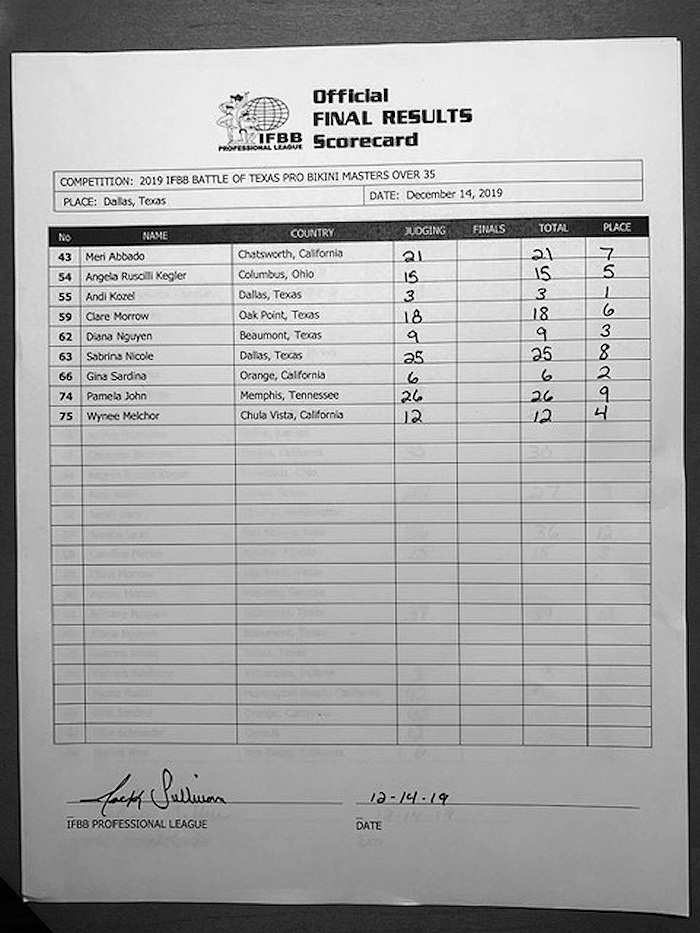 Official
FINAL RESULTS
Scorecard
IFBB
PROFESSIONAL LEAGUE
COMPETITION: 2019 IFBB BATTLE OF TEXAS PRO BIKINI MASTERS OVER 35
PLACE: Dallas, Texas DATE: December 14, 2019
No NAME COUNTRY JUDGING FINALS TOTAL PLACE
43 Meri Abbado Chatsworth, California 21 21 7
54 Angela Ruscilli Kegler Columbus, Ohio 15 15 5
55 Andi Kozel Dallas, Texas 3 3 1
59 Clare Morrow Oak Point, Texas 18 18 6
62 Diana Nguyen Beaumont, Texas 9 9 3
63 Sabrina Nicole Dallas, Texas 25 25 8
66 Gina Sardina Orange, California 6 6 2
74 Pamela John Memphis, Tennessee 26 26 9
75 Wynee Melchor Chula Vista, California 12 12 4
Sullivan 12-14-19
IFBB PROFESSIONAL LEAGUE DATE